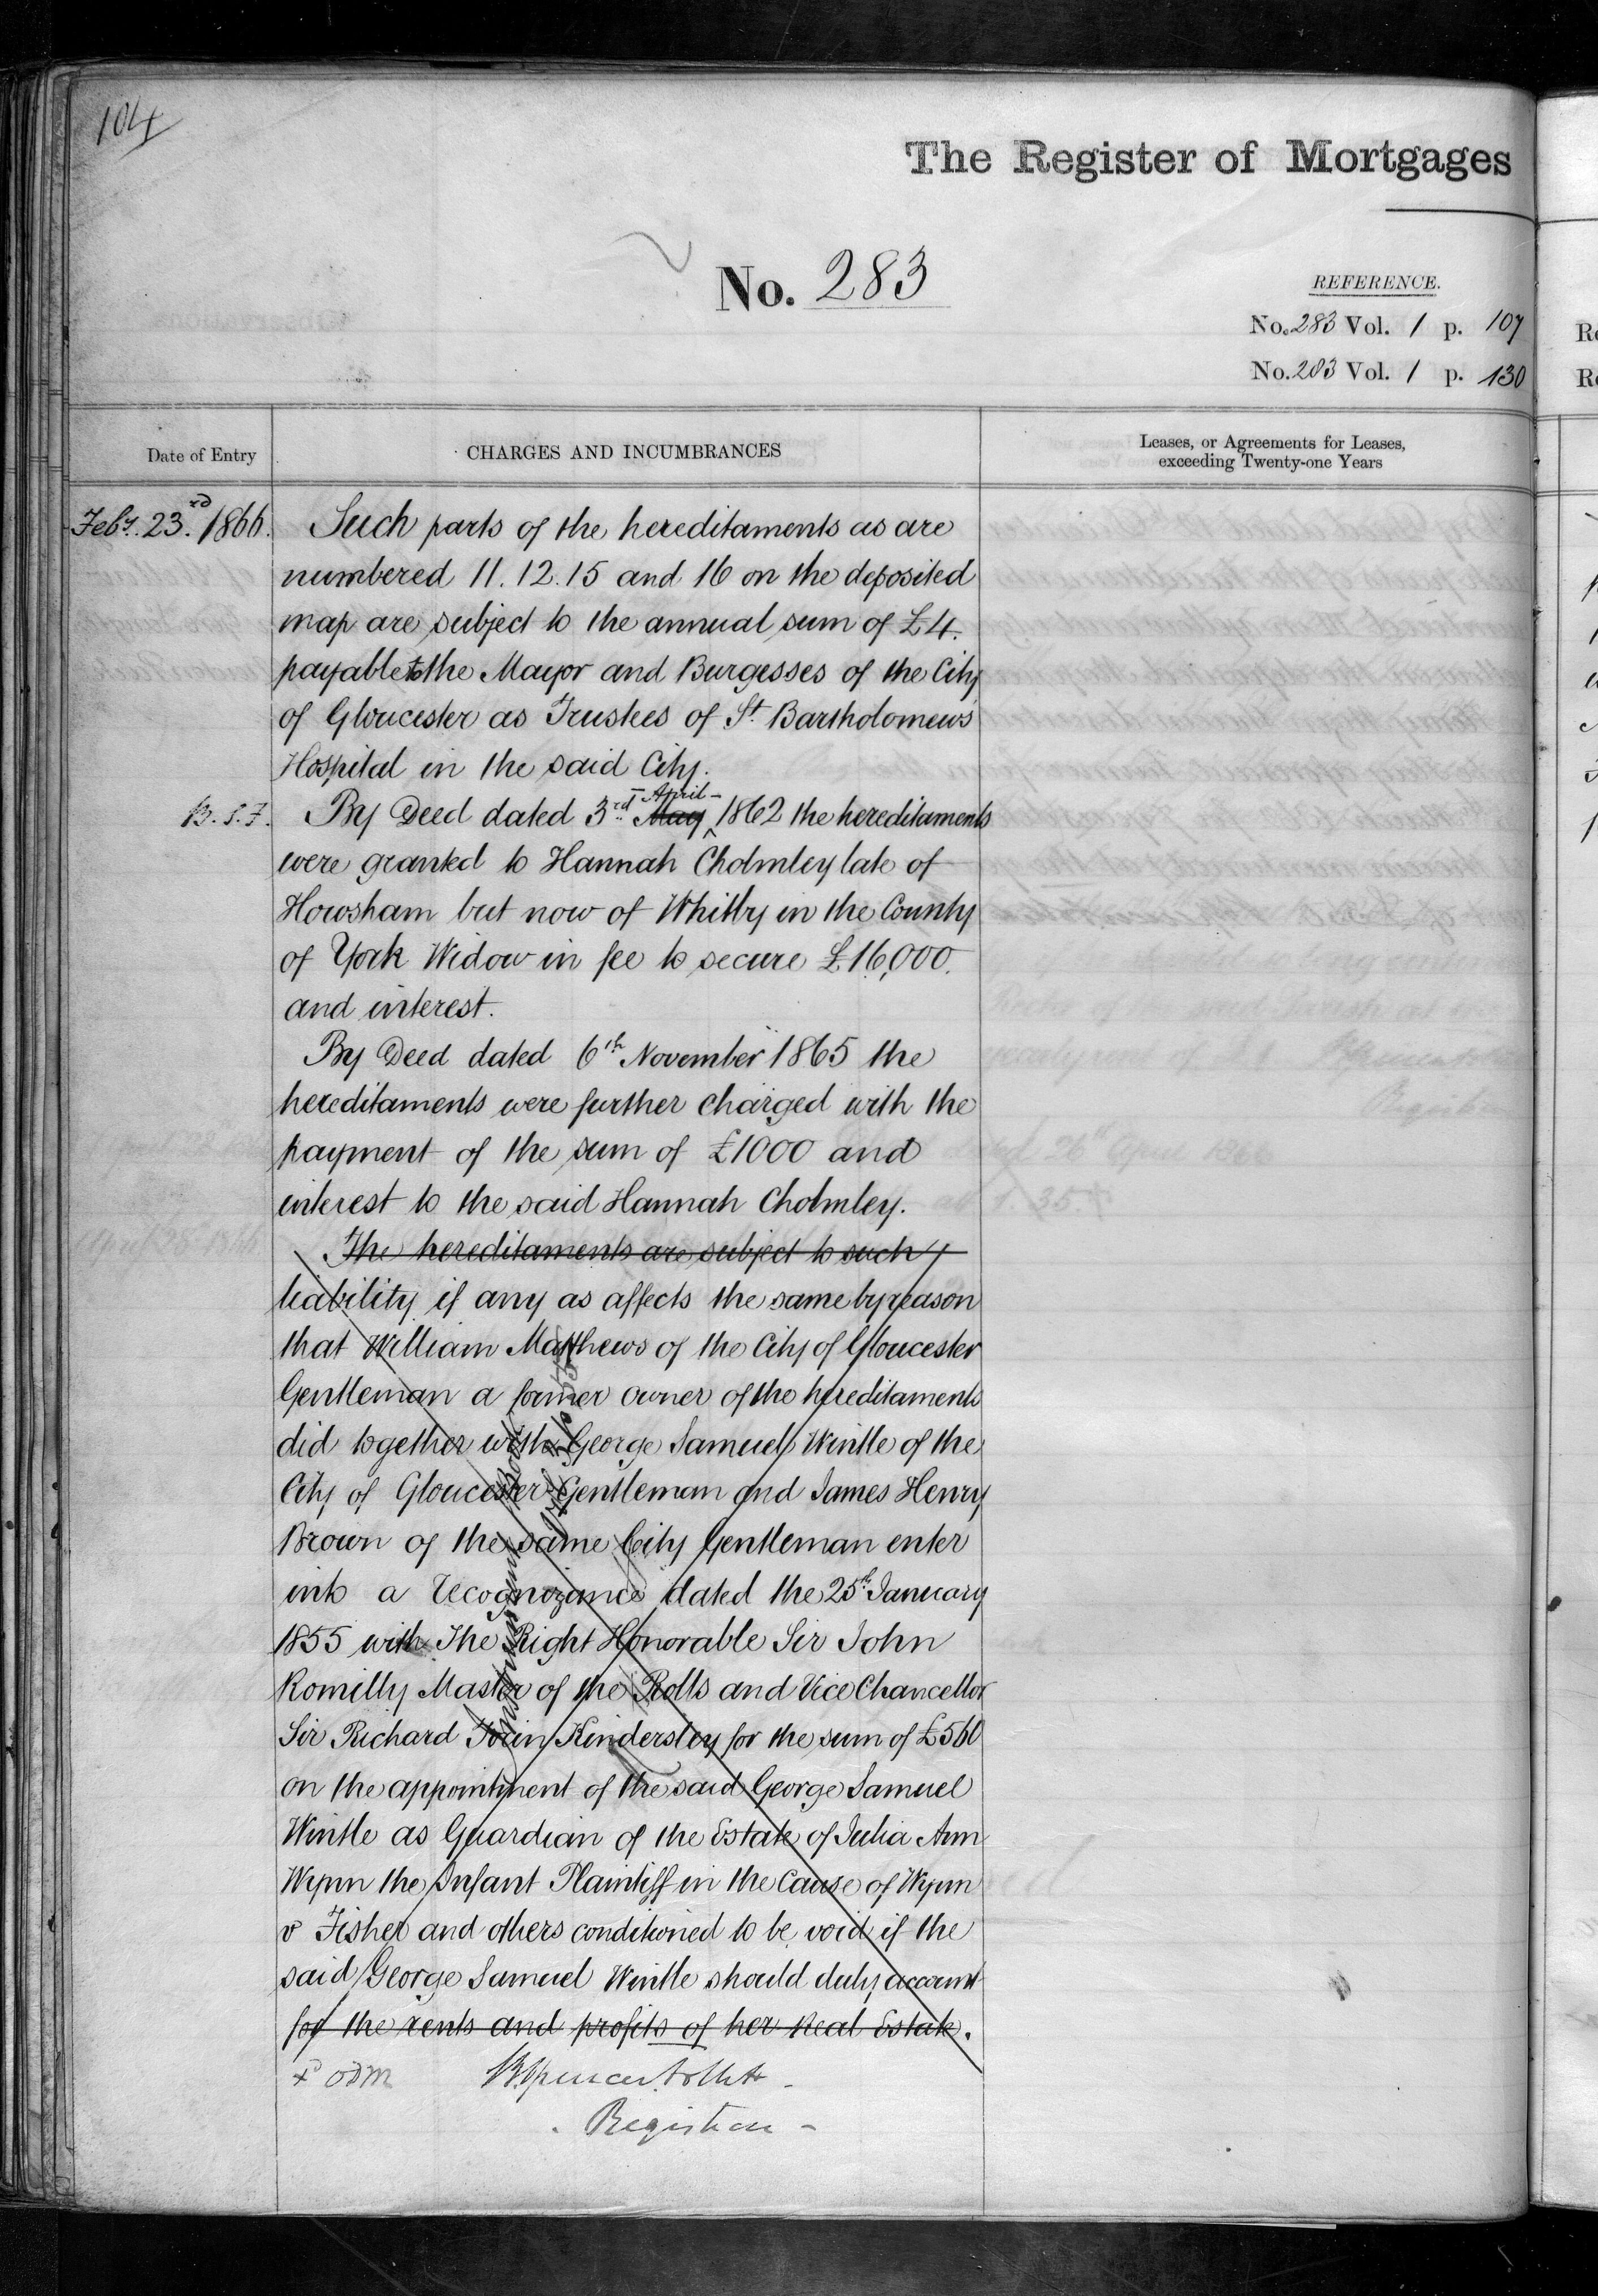 104
The Register of Mortgages
No. 283
REFERENCE.
No. 283 Vol. 1 p. 107
No. 283 Vol. 1 p. 130
Date of Entry
CHARGES AND INCUMBRANCES
Leases, or Agreements for Leases,
exceeding Twenty-one Years
Feby. 23rd 1866.
Such parts of the hereditaments as are
numbered 11. 12. 15 and 16 on the deposited
map are subject to the annual sum of £4.
payable to the Mayor and Burgesses of the City
of Gloucester as Trustees of St. Bartholomews
Hospital in the said City.
B.S.F.
By Deed dated 3rd May April 1862 the hereditaments
were granted to Hannah Cholmley late of
Howsham but now of Whitby in the County
of York Widow in fee to secure £16,000.
and interest.
By Deed dated 6th November 1865 the
hereditaments were further charged with the
payment of the sum of £1000 and
interest to the said Hannah Cholmley.
The hereditaments are subject to such
liability if any as affects the same by reason
that William Matthews of the City of Gloucester
Gentleman a former owner of the hereditaments
did together with George Samuel Wintle of the
City of Gloucester Gentleman and James Henry
Brown of the same City Gentleman enter
into a recognizance dated the 25th January
1855 with The Right Honorable Sir John
Romilly Master of the Rolls and Vice Chancellor
Sir Richard Torin Kindersley for the sum of £560
on the appointment of the said George Samuel
Wintle as Guardian of the Estate of Julia Ann
Wynn the Infant Plaintiff in the Cause of Wynn
v Fisher and others conditioned to be void if the
said George Samuel Wintle should duly account
for the rents and profits of her Real Estate.
Registrar